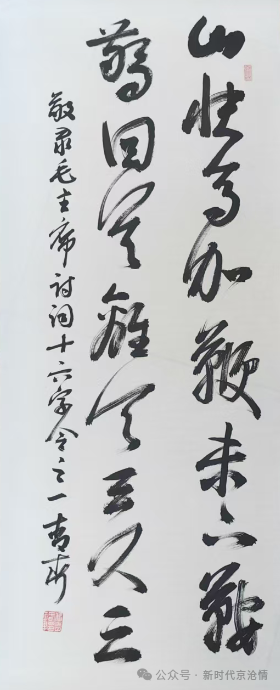 山快马加鞭未下鞍
驚回首離天三尺三
敬录毛主席诗词十六字令之一
公众号 · 新时代京沧情